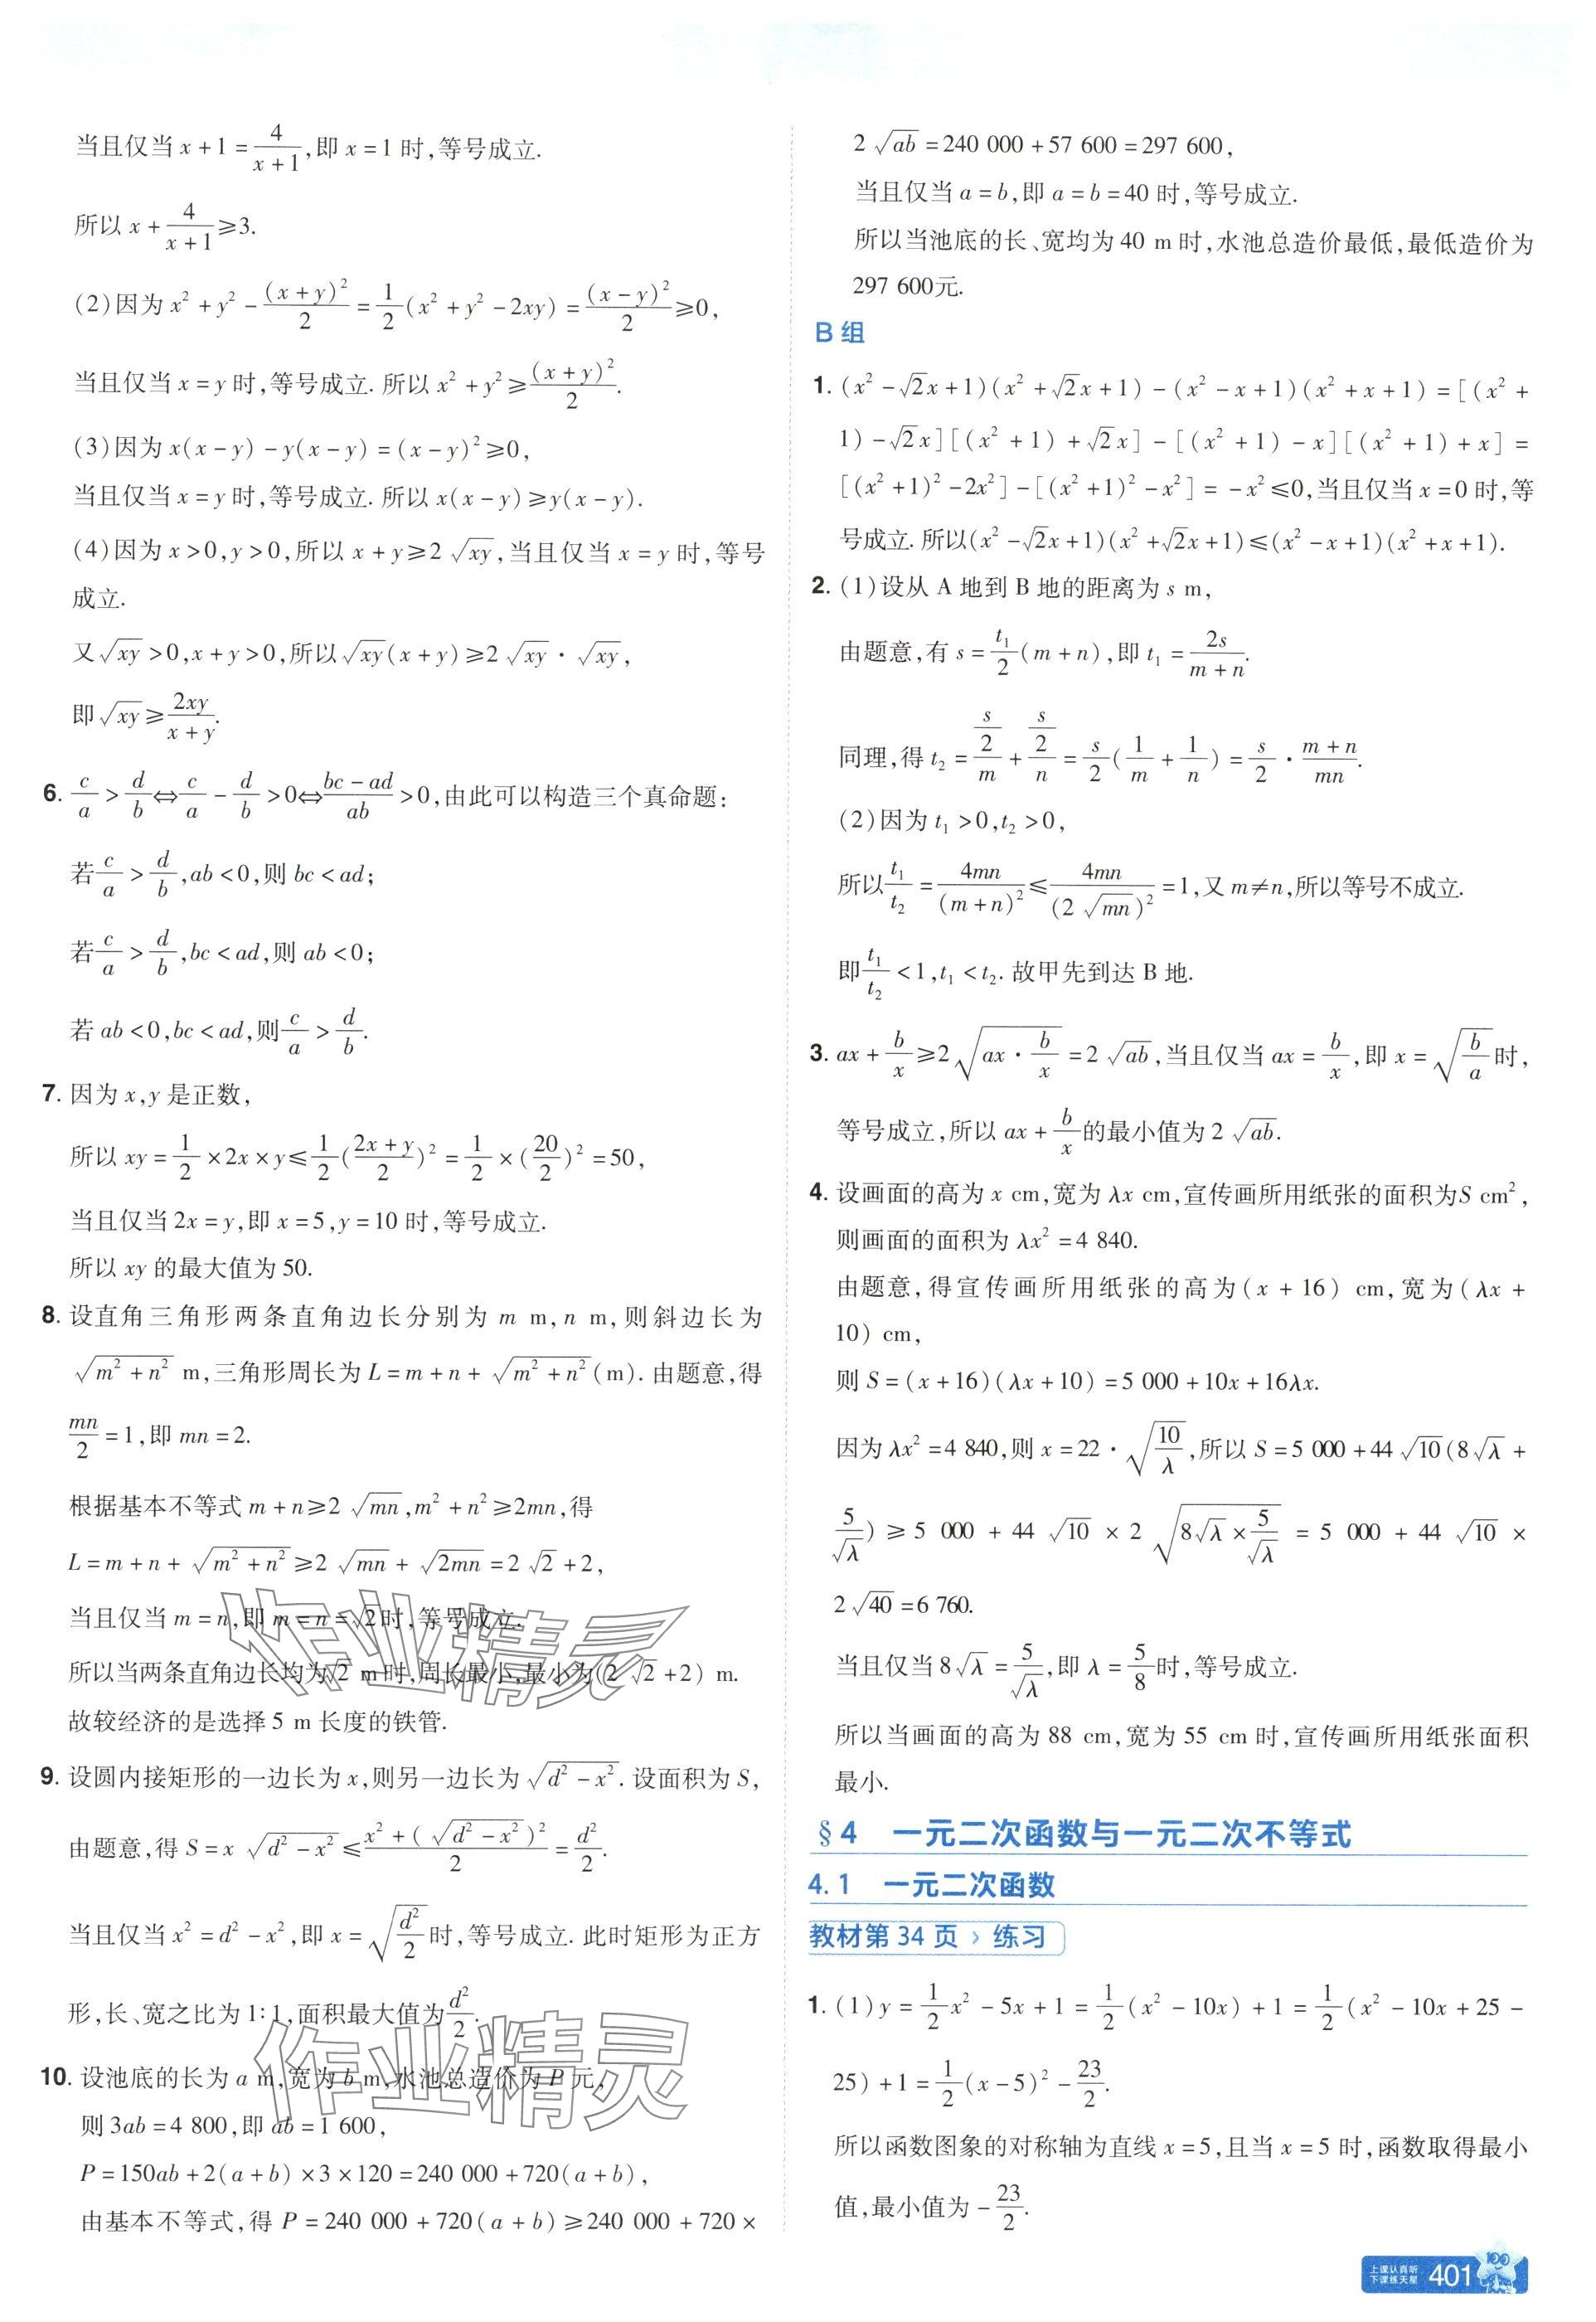 当且仅当 x+1=4/(x+1),即 x=1 时,等号成立.
所以 x+4/(x+1)≥3.
(2)因为 x²+y²-(x+y)²/2=1/2(x²+y²-2xy)=(x-y)²/2≥0,
当且仅当 x=y 时,等号成立. 所以 x²+y²≥(x+y)²/2.
(3)因为 x(x-y)-y(x-y)=(x-y)²≥0,
当且仅当 x=y 时,等号成立. 所以 x(x-y)≥y(x-y).
(4)因为 x>0,y>0,所以 x+y≥2√(xy),当且仅当 x=y 时,等号
成立.
又√(xy)>0,x+y>0,所以√(xy)(x+y)≥2√(xy)·√(xy),
即√(xy)≥2xy/(x+y).
6. c/a>d/b⇔c/a-d/b>0⇔(bc-ad)/ab>0,由此可以构造三个真命题:
若c/a>d/b,ab<0,则 bc<ad;
若c/a>d/b,bc<ad,则 ab<0;
若 ab<0,bc<ad,则c/a>d/b.
7. 因为 x,y 是正数,
所以 xy=1/2×2x×y≤1/2((2x+y)/2)²=1/2×(20/2)²=50,
当且仅当 2x=y,即 x=5,y=10 时,等号成立.
所以 xy 的最大值为 50.
8. 设直角三角形两条直角边长分别为 m m,n m,则斜边长为
√(m²+n²) m,三角形周长为 L=m+n+√(m²+n²)(m). 由题意,得
mn/2=1,即 mn=2.
根据基本不等式 m+n≥2√(mn),m²+n²≥2mn,得
L=m+n+√(m²+n²)≥2√(mn)+√(2mn)=2√2+2,
当且仅当 m=n,即 m=n=√2时,等号成立.
所以当两条直角边长均为√2 m 时,周长最小,最小为(2√2+2) m.
故较经济的是选择 5 m 长度的铁管.
9. 设圆内接矩形的一边长为 x,则另一边长为√(d²-x²). 设面积为 S,
由题意,得 S=x√(d²-x²)≤(x²+(√(d²-x²))²)/2=d²/2.
当且仅当 x²=d²-x²,即 x=√(d²/2)时,等号成立. 此时矩形为正方
形,长、宽之比为 1:1,面积最大值为d²/2.
10. 设池底的长为 a m,宽为 b m,水池总造价为 P 元,
则 3ab=4 800,即 ab=1 600,
P=150ab+2(a+b)×3×120=240 000+720(a+b),
由基本不等式,得 P=240 000+720(a+b)≥240 000+720×
2√(ab)=240 000+57 600=297 600,
当且仅当 a=b,即 a=b=40 时,等号成立.
所以当池底的长、宽均为 40 m 时,水池总造价最低,最低造价为
297 600元.
B 组
1. (x²-√2x+1)(x²+√2x+1)-(x²-x+1)(x²+x+1)=[(x²+
1)-√2x][(x²+1)+√2x]-[(x²+1)-x][(x²+1)+x]=
[(x²+1)²-2x²]-[(x²+1)²-x²]=-x²≤0,当且仅当 x=0 时,等
号成立. 所以(x²-√2x+1)(x²+√2x+1)≤(x²-x+1)(x²+x+1).
2. (1)设从 A 地到 B 地的距离为 s m,
由题意,有 s=t₁/2(m+n),即 t₁=2s/(m+n).
同理,得 t₂=(s/2)/m+(s/2)/n=s/2(1/m+1/n)=s/2·(m+n)/mn.
(2)因为 t₁>0,t₂>0,
所以t₁/t₂=4mn/(m+n)²≤4mn/(2√(mn))²=1,又 m≠n,所以等号不成立.
即t₁/t₂<1,t₁<t₂. 故甲先到达 B 地.
3. ax+b/x≥2√(ax·b/x)=2√(ab),当且仅当 ax=b/x,即 x=√(b/a)时,
等号成立,所以 ax+b/x的最小值为 2√(ab).
4. 设画面的高为 x cm,宽为 λx cm,宣传画所用纸张的面积为S cm²,
则画面的面积为 λx²=4 840.
由题意,得宣传画所用纸张的高为(x+16) cm,宽为(λx+
10) cm,
则 S=(x+16)(λx+10)=5 000+10x+16λx.
因为 λx²=4 840,则 x=22·√(10/λ),所以 S=5 000+44√10(8√λ+
5/√λ)≥5 000+44√10×2√(8√λ×5/√λ)=5 000+44√10×
2√40=6 760.
当且仅当 8√λ=5/√λ,即 λ=5/8时,等号成立.
所以当画面的高为 88 cm,宽为 55 cm 时,宣传画所用纸张面积
最小.
§4 一元二次函数与一元二次不等式
4.1 一元二次函数
教材第 34 页 › 练习
1. (1)y=1/2x²-5x+1=1/2(x²-10x)+1=1/2(x²-10x+25-
25)+1=1/2(x-5)²-23/2.
所以函数图象的对称轴为直线 x=5,且当 x=5 时,函数取得最小
值,最小值为-23/2.
作业精灵
作业精灵
上课认真听
下课练天星
401
100